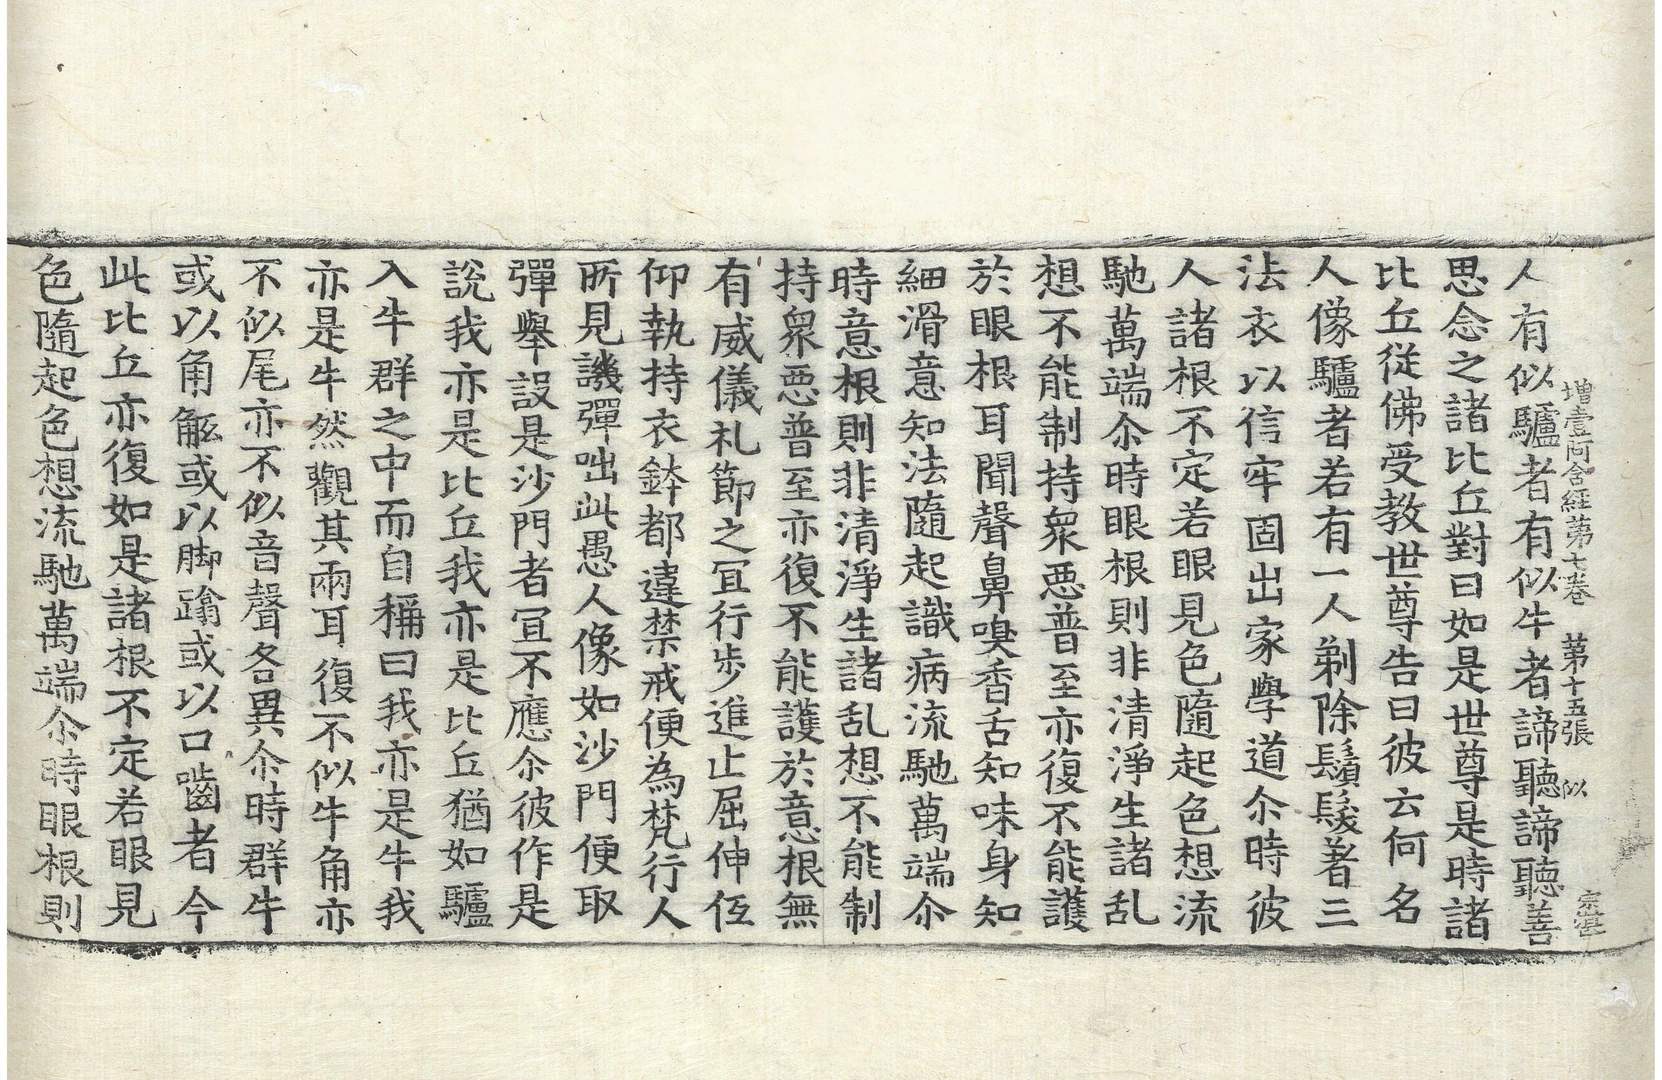 增壹阿含經第七卷 第十五張 似 宗莹
人有似驢者有似牛者諦聽諦聽善
思念之諸比丘對曰如是世尊是時諸
比丘從佛受教世尊告曰彼云何名
人像驢者若有一人剃除鬚髮著三
法衣以信牢固出家學道尒時彼
人諸根不定若眼見色隨起色想流
馳萬端尒時眼根則非清淨生諸乱
想不能制持衆惡普至亦復不能護
於眼根耳聞聲鼻嗅香舌知味身知
細滑意知法隨起識病流馳萬端尒
時意根則非清淨生諸乱想不能制
持衆惡普至亦復不能護於意根無
有威儀礼節之冝行步進止屈伸低
仰執持衣鉢都違禁戒便為梵行人
所見譏彈咄此愚人像如沙門便取
彈舉設是沙門者冝不應尒彼作是
說我亦是比丘我亦是比丘猶如驢
入牛群之中而自稱曰我亦是牛我
亦是牛然觀其兩耳復不似牛角亦
不似尾亦不似音聲各異尒時群牛
或以角觝或以脚蹹或以口嚙者今
此比丘亦復如是諸根不定若眼見
色隨起色想流馳萬端尒時眼根則